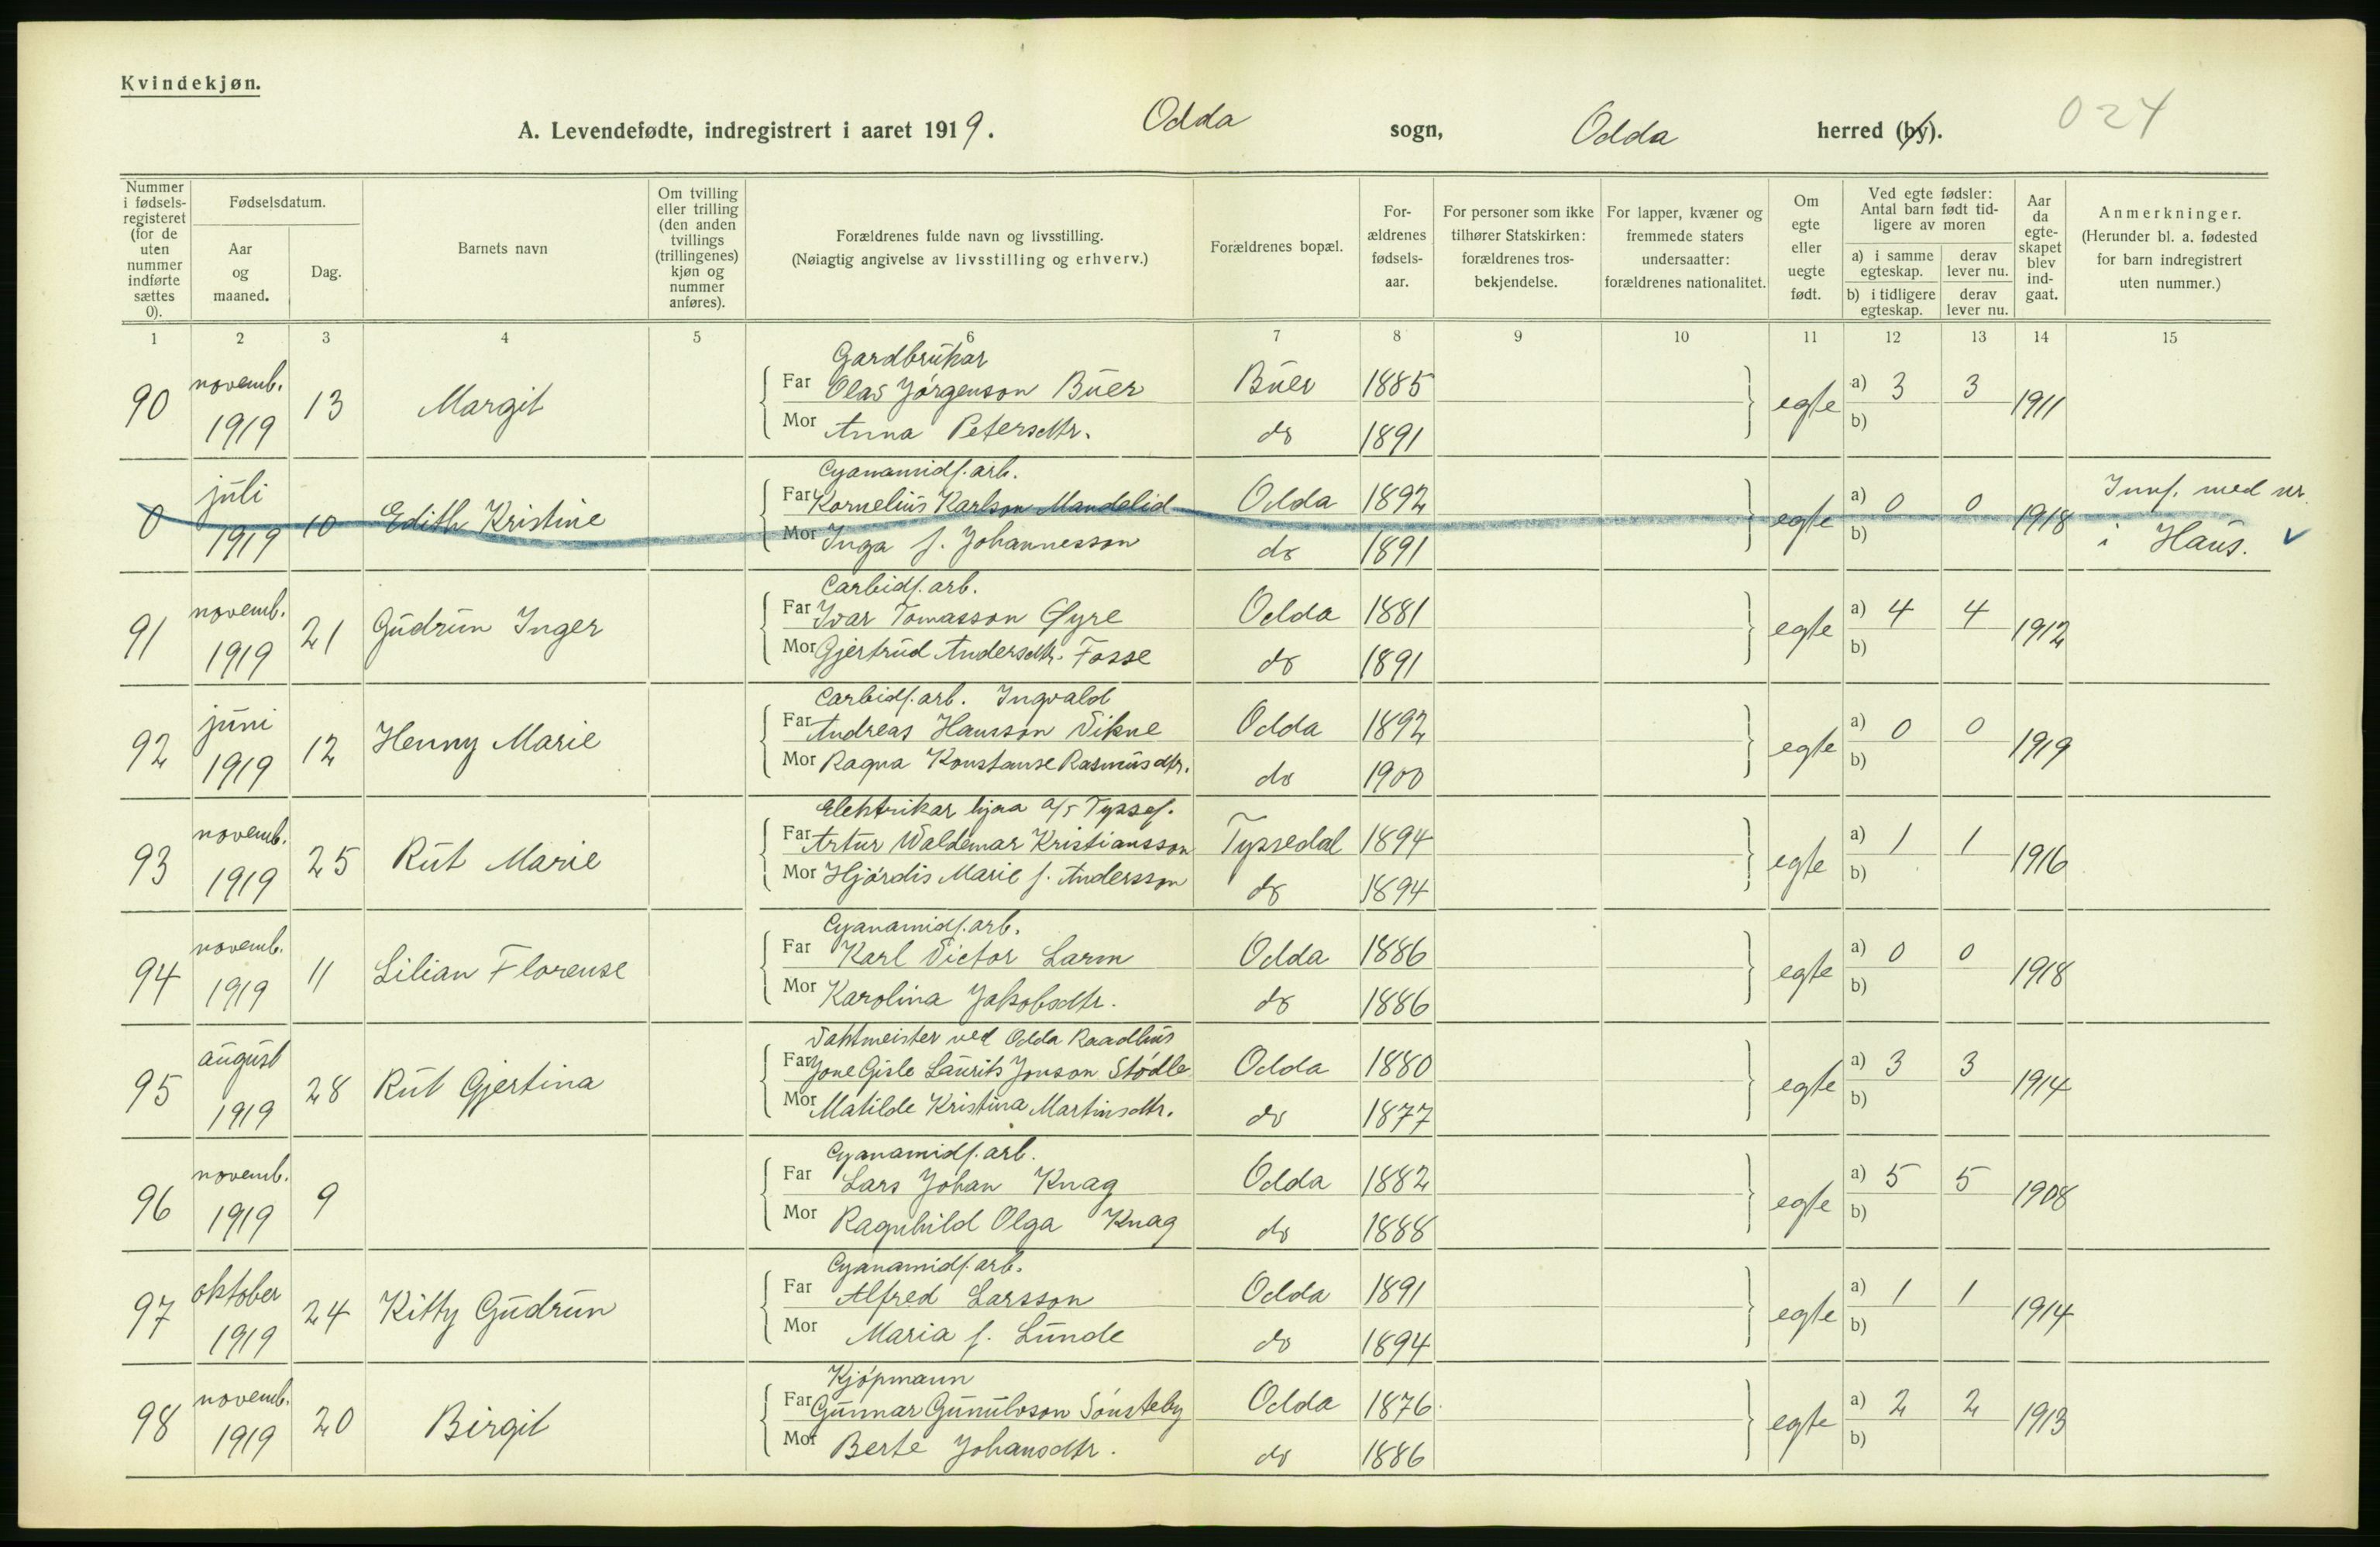 Kvindekjøn.
A. Levendefødte, indregistrert i aaret 1919. Odda sogn, Odda herred (by). 024
Nummer i fødsels-registeret (for de uten nummer indførte sættes 0).
Fødselsdatum.
Aar og maaned.
Dag.
Barnets navn
Om tvilling eller trilling (den anden tvillings (trillingenes) kjøn og nummer anføres).
Forældrenes fulde navn og livsstilling.
(Nøiagtig angivelse av livsstilling og erhverv.)
Forældrenes bopæl.
For-ældrenes fødsels-aar.
For personer som ikke tilhører Statskirken: forældrenes tros-bekjendelse.
For lapper, kvæner og fremmede staters undersaatter: forældrenes nationalitet.
Om egte eller uegte født.
Ved egte fødsler: Antal barn født tid-ligere av moren
a) i samme egteskap. derav lever nu.
b) i tidligere egteskap. derav lever nu.
Aar da egte-skapet blev ind-gaat.
Anmerkninger.
(Herunder bl. a. fødested for barn indregistrert uten nummer.)
1 2 3 4 5 6 7 8 9 10 11 12 13 14 15
Gardbrukar
90 novemb. 1919 13 Margit Far Olav Jørgenson Buer Buer 1885 egte a) 3 3 1911
Mor Anna Petersdtr. do 1891 b)
Cyanamidf. arb.
0 juli 1919 10 Edith Kristine Far Kornelius Karlson Mandelid Odda 1892 egte a) 0 0 1918 Innf. med nr.
Mor Inga f. Johannesson do 1891 b) i Haus.
Carbidf. arb.
91 novemb. 1919 21 Gudrun Inger Far Ivar Tomasson Øyre Odda 1881 egte a) 4 4 1912
Mor Gjertrud Andersdtr. Fosse do 1891 b)
Carbidf. arb. Ingvald
92 juni 1919 12 Henny Marie Far Andreas Hansson Vikne Odda 1892 egte a) 0 0 1919
Mor Ragna Konstanse Rasmusdtr. do 1900 b)
Elektrikar hjaa a/s Tyssef.
93 novemb. 1919 25 Rut Marie Far Artur Waldemar Kristiansson Tyssedal 1894 egte a) 1 1 1916
Mor Hjørdis Marie f. Andersson do 1894 b)
Cyanamidf. arb.
94 novemb. 1919 11 Lilian Florense Far Karl Victor Larm Odda 1886 egte a) 0 0 1918
Mor Karolina Jakobsdtr. do 1886 b)
Vaktmeister ved Odda Raadhus
95 august 1919 28 Rut Gjertina Far Jone Gisle Laurits Jonson Stødle Odda 1880 egte a) 3 3 1914
Mor Matilde Kristina Martinsdtr. do 1877 b)
Cyanamidf. arb.
96 novemb. 1919 9 Far Lars Johan Knag Odda 1882 egte a) 5 5 1908
Mor Ragnhild Olga Knag do 1888 b)
Cyanamidf. arb.
97 oktober 1919 24 Kitty Gudrun Far Alfred Larsson Odda 1891 egte a) 1 1 1914
Mor Maria f. Lunde do 1894 b)
Kjøpmann
98 novemb. 1919 20 Birgit Far Gunnar Gunulvson Sønsteby Odda 1876 egte a) 2 2 1913
Mor Berte Johansdtr. do 1886 b)